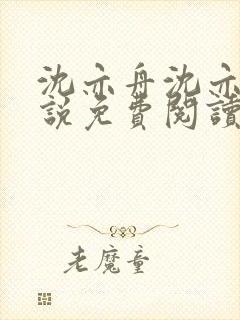 沈亦舟沈亦
說免費閱讀
老魔童